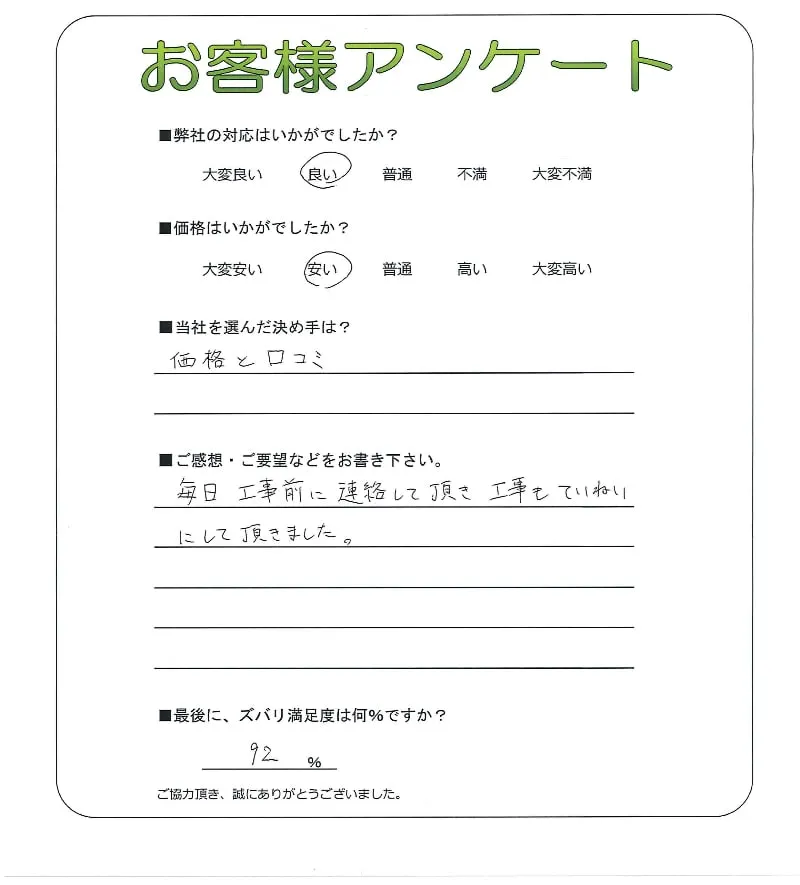 お客様アンケート
■弊社の対応はいかがでしたか？
大変良い 良い 普通 不満 大変不満
■価格はいかがでしたか？
大変安い 安い 普通 高い 大変高い
■当社を選んだ決め手は？
価格と口コミ
■ご感想・ご要望などをお書き下さい。
毎日 工事前に 連絡して頂き 工事も ていねい
にして頂きました。
■最後に、ズバリ満足度は何%ですか？
92 %
ご協力頂き、誠にありがとうございました。